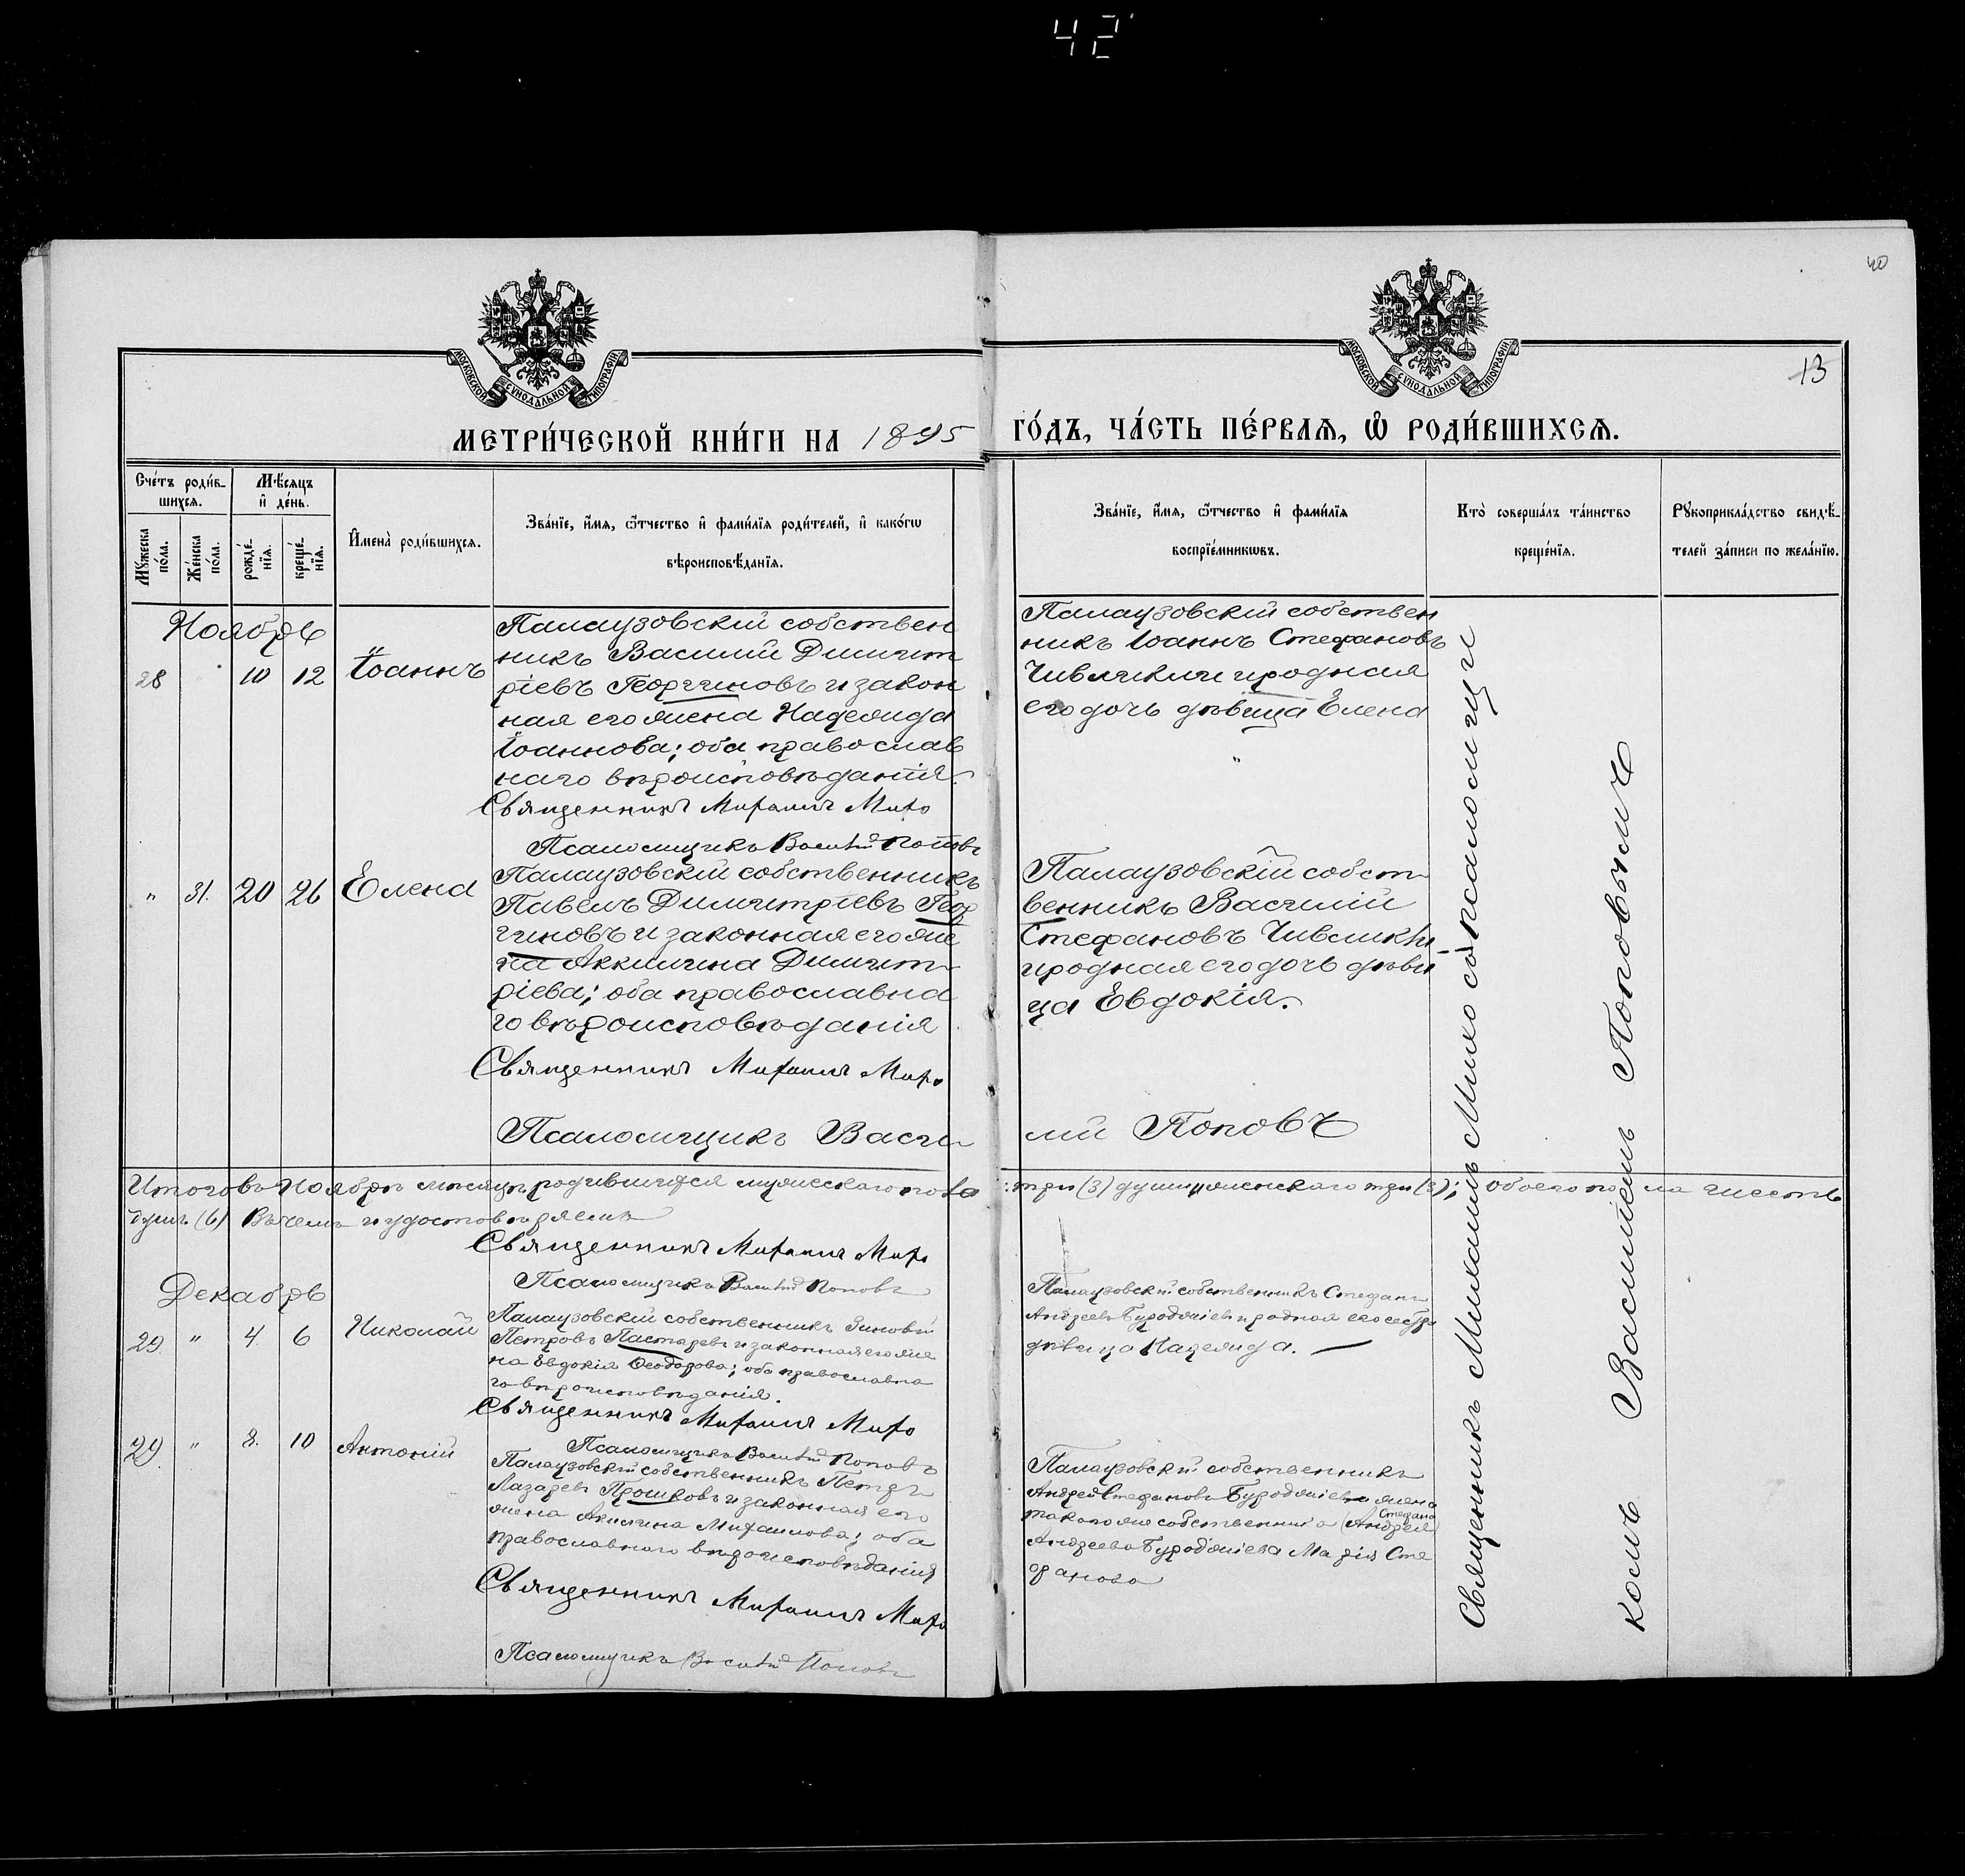 42
40
13
МОСКОВСКОЙ СѴНОДАЛЬНОЙ ТИПОГРАФІИ
МОСКОВСКОЙ СѴНОДАЛЬНОЙ ТИПОГРАФІИ
МЕТРИ́ЧЕСКОЙ КНИ́ГИ НА 1895 ГО́ДЪ, ЧА́СТЬ ПЕ́РВАѦ, Ѡ РОДИ́ВШИХСѦ.
Сче́тъ роди́в-
шихсѧ.
Мꙋжеска по́ла.
Же́нска по́ла.
Мѣ́сѧцъ
и҆ де́нь.
рожде́-
нїѧ.
креще́-
нїѧ.
И҆мена̀ роди́вшихсѧ.
Зва́нїе, и҆́мѧ, ѻ҆́тчество и҆ фами́лїѧ роди́телей, и҆ како́гѡ
вѣроисповѣ́данїѧ.
Зва́нїе, и҆́мѧ, ѻ҆́тчество и҆ фами́лїѧ
воспрїе́мникѡвъ.
Кто̀ соверша́лъ та́инство
креще́нїѧ.
Рꙋкоприкла́дство свидѣ́-
телей за́писи по жела́нїю.
Ноябрь
28
10
12
Іоаннъ
Палаузовскій собствен
никъ Василій Димит
ріевъ Георгиновъ и закон
ная его жена Надежда
Іоаннова; оба православ
наго вѣроисповѣданія
Священникъ Михаилъ Михо
Псаломщикъ Василій Поповъ
Палаузовскій собствен
никъ Іоаннъ Стефановъ
Чивликли и родная
его дочь дѣвица Елена
"
" 31. 20 26 Елена
Палаузовскій собственникъ
Павелъ Димитріевъ Геор
гиновъ и законная его же
на Аккилина Димит
ріева; оба православна
го вѣроисповѣданія
Священникъ Михаилъ Михо
Псаломщикъ Васи лій Поповъ
Палаузовскій собст
венникъ Василій
Стефановъ Чивликли
и родная его дочь дѣви
ца Евдокія.
Итого въ Ноябрѣ мѣсяцѣ родившихся мужескаго пола: три (3) души, женскаго три (3); обоего пола шесть
душъ (6) Въ чемъ и удостовѣряемъ
Священникъ Михаилъ Михо
Псаломщикъ Василій Поповъ
Декабрь
29. " 4. 6 Николай
Палаузовскій собственникъ Зиновій
Петровъ Пастаревъ и законная его же
на Евдокія Ѳеодорова; оба православна
го вѣроисповѣданія.
Священникъ Михаилъ Михо
Псаломщикъ Василій Поповъ
Палаузовскій собственникъ Стефанъ
Андреевъ Буроджіевъ и родная его сестра
дѣвица Надежда.
29. " 8. 10 Антоній
Палаузовскій собственникъ Петръ
Лазаревъ Прошковъ и законная его
жена Акилина Михаилова; оба
православнаго вѣроисповѣданія
Священникъ Михаилъ Михо
Псаломщикъ Василій Поповъ
Палаузовскій собственникъ
Андрей Стефановъ Буроджіевъ и жена
Стефана
такого же собственника (Андрея)
Андреева Буроджіева Марія Сте
фанова
Священникъ Михаилъ Михо съ псаломщи
комъ Василіемъ Поповымъ